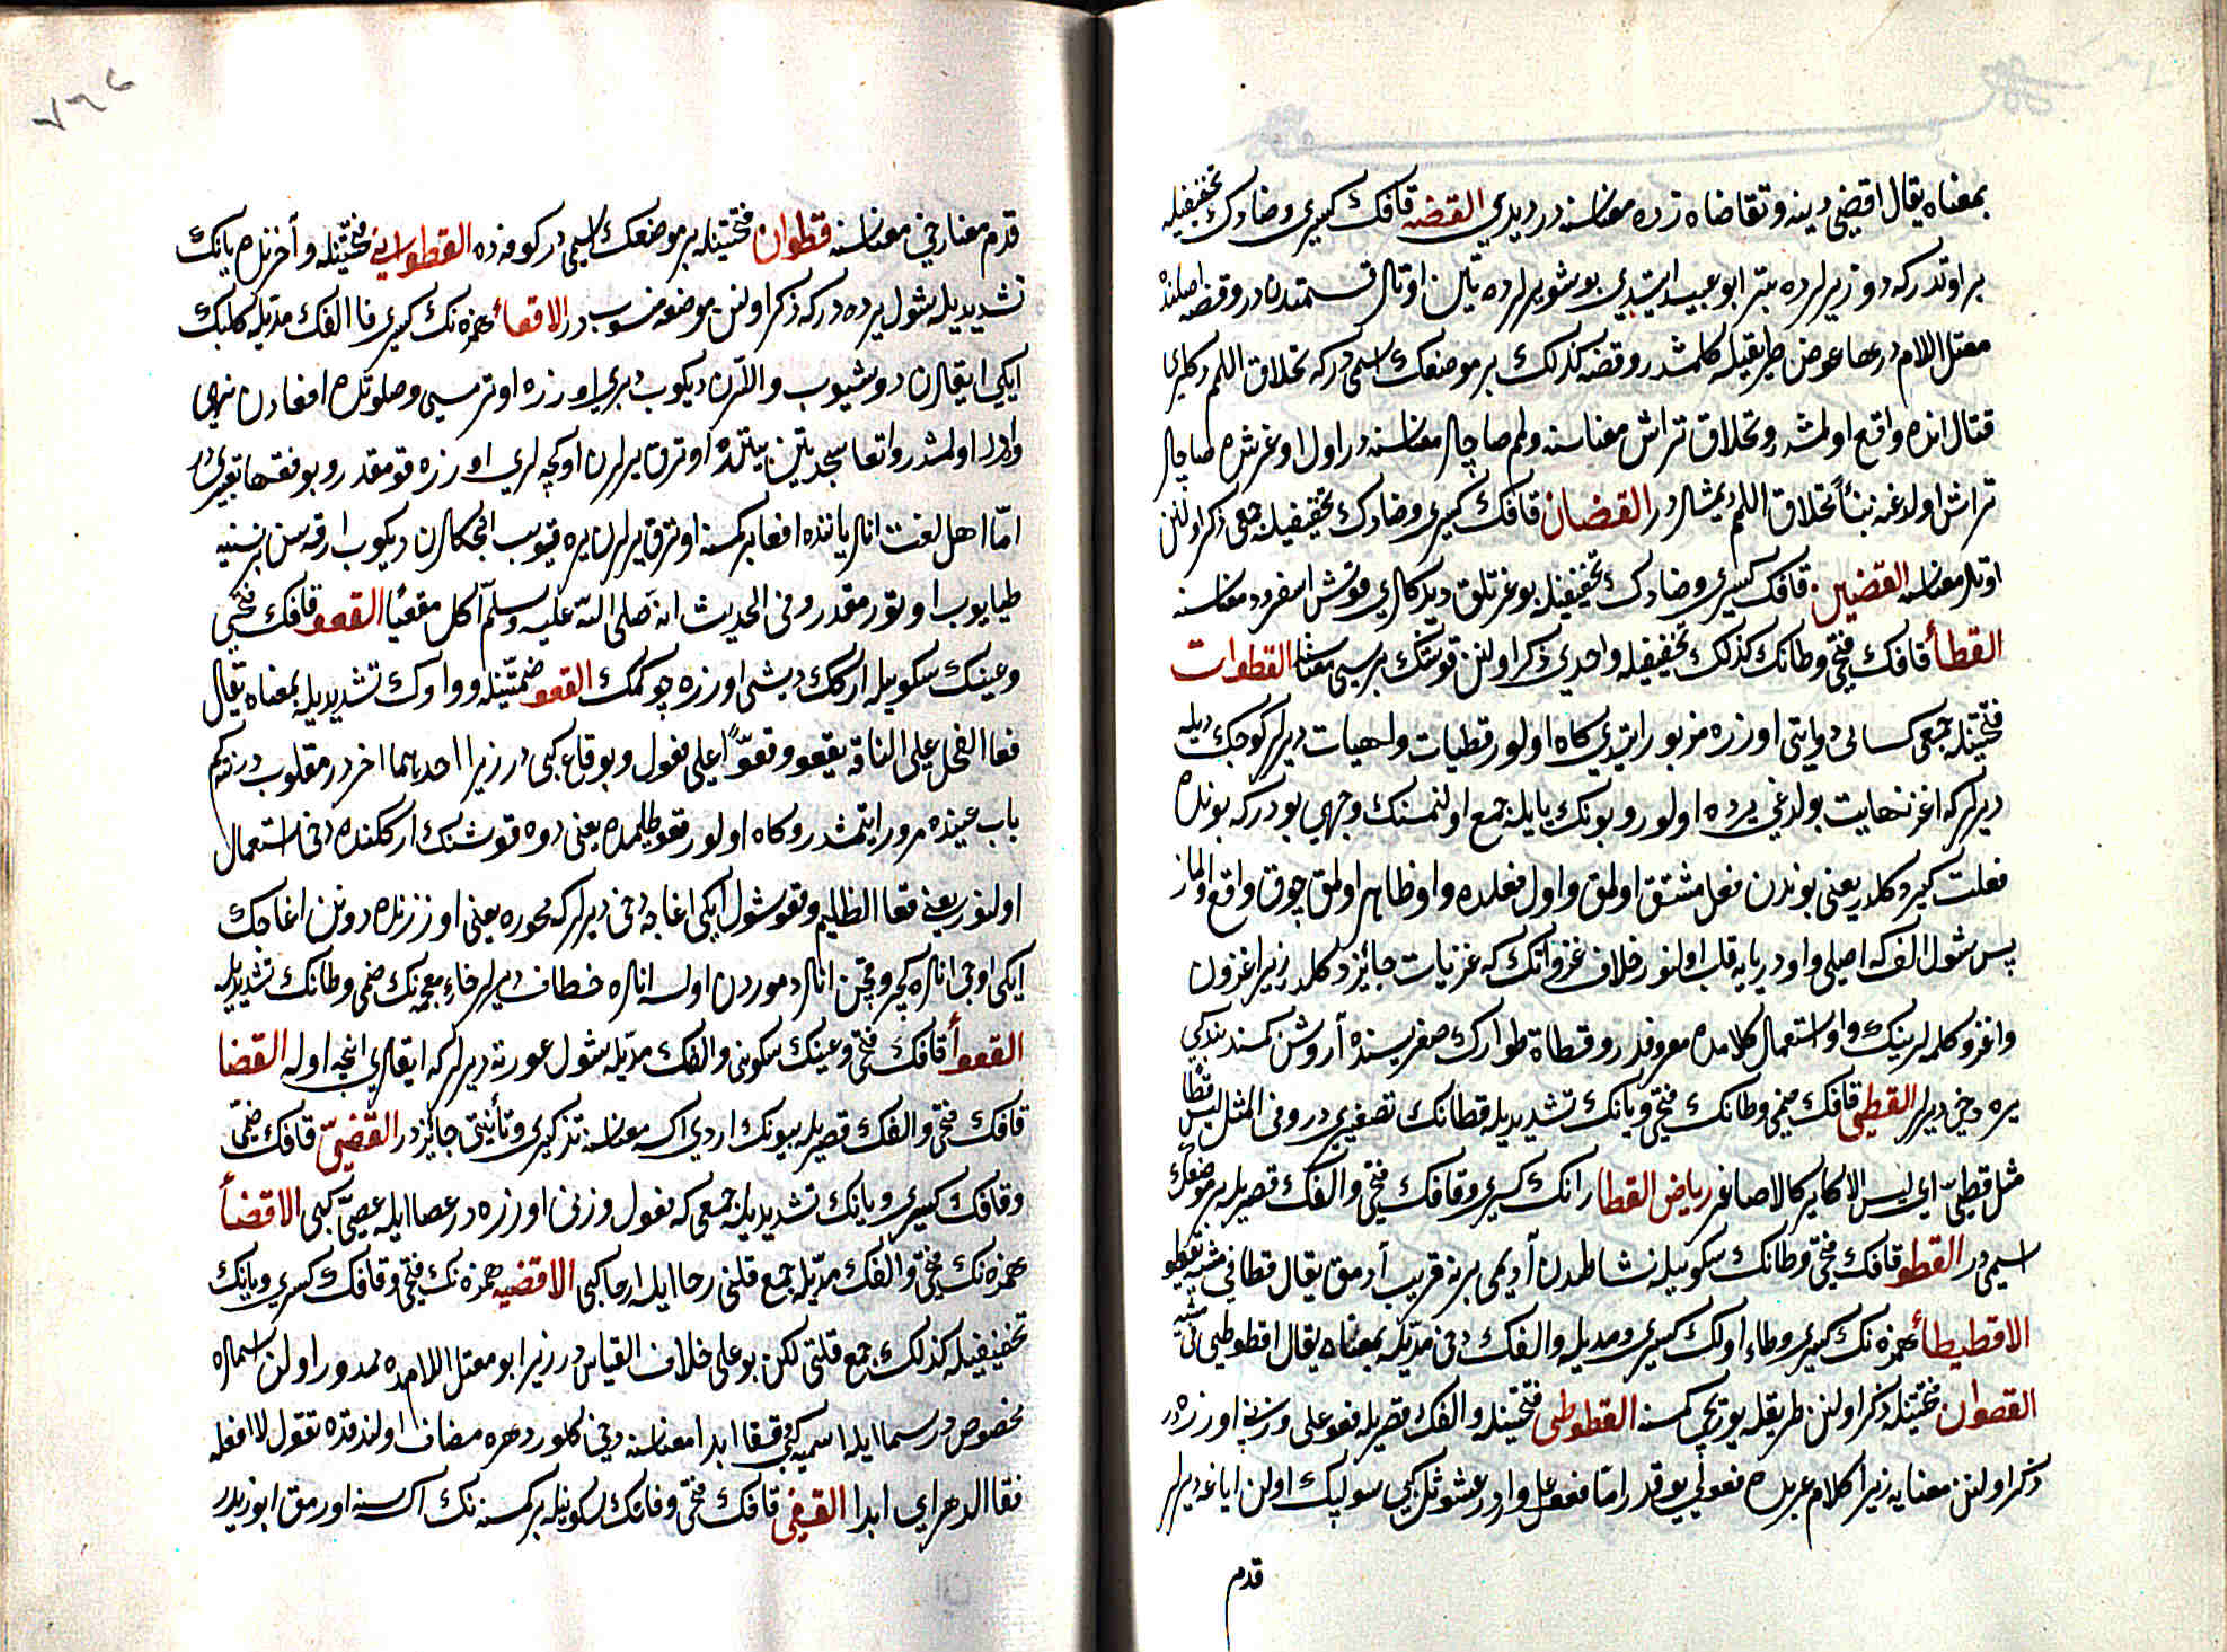 بمعناه يقال اقتضى دينه وتقاضاه زده معناسنه در ديدي القضه قافك كسرى وضادك تخفيفيله
بر اوتدر كه دوزيرلرده بتر ابو عبيد ايتدى بو شور يرلرده بتن اوتلر قسمتدندر وقضه اصلنده
معتل اللام در ها عوض طريقيله كلمشدر وقضه كذلك بر موضعك اسمى در كه تحلاق اللمم دكلرى
قتال انده واقع اولمشدر وتحلاق تراش معناسنه ولمم صاچلر معناسنه در اول اوغرشده صاچلر
تراش اولدغنه بناً تحلاق اللمم ديمشلر در القضان قافك كسرى وضادك تخفيفيله جمعى ذكر اولنن
اوتلر معناسنه القضين قافك كسرى وضادك تخفيفيله بوغرتلق ديدكلرى قوش اسفرود معناسنه
القطا قافك فتحى وطانك كذلك تخفيفيله واحدى ذكر اولنن قوشك بريسى معناسنه القطوات
فتحتينله جمعى كسائى روايتى اوزره مزبور ايتدى كاه اولور قطيات ولهيات ديرلر كوجك ديله
ديرلر كه اغز نهايت بولدغى يرده اولور وبونك يايله جمع اولنمسنك وجهى بودر كه بونلرده
فعلت كير دكلدر يعنى بوندن فعل مشتق اولمق واول فعلده واو ظاهر اولمق چوق واقع اولماز
پس شول الف كه اصلى واودر يايه قلب اولنور خلاف غزواتك كه غزيات جائز دكلدر زيرا غزوت
واغزو كلمه لرينك واو استعمالى كلامده معروفدر وقطاة طوارك صغريسنده آردش كمسنه بندكى
يره دخى ديرلر القطى قافك ضمى وطانك فتحى ويانك تشديديله قطانك تصغيرى در وفى المثل ليس قطا
مثل قطى اى ليس الاكابر كالاصاغر رياض القطا رانك كسرى وقافك فتحى والفك قصريله بر موضعك
اسمى در القطو قافك فتحى وطانك سكونيله نشاطدن آديمى برينه قريب آدمق يقال قطا فى مشيه يقطو
الاقطيطاء همزه نك كسرى وطاء اولك كسرى ومديله والفك دخى مديله بمعناه يقال اقطوطى فى مشيه
القطوان فتحتينله ذكر اولنن طريقله يوريجى كمسنه القطوطى فتحتينله والفك قصريله فعوعل وزنى اوزره در
ذكر اولنن معنايه زيرا كلام عربده فعولى يوقدر اما فعوعل واردر عشوثل كبى سولپك اولن اياغه ديرلر
قدم
قدم معنا دخى معناسنه قطوان فتحتينله بر موضعك اسمى در كوفه ده القطوانى فتحتينله وآخرنده يانك
تشديديله شول يرده در كه ذكر اولنن موضعه منسوب در الاقعاء همزه نك كسرى فا الفك مديله كلبك
ايكى ايقلرن دوشيوب واللرن ديكوب دبرى اوزره اوترمسى وصلوتده اقعادن نهى
وارد اولمشدر واقعا سجدتين بيننده اوترق يرلرن اوكچه لرى اوزره قومقدر وبو فقها تعبيرى در
اما اهل لغت انلر ياننده اقعا بر كمسنه اوترق يرلرن يره قيوب انجكلرن ديكوب ارقه سن بر نسنيه
طيايوب اوتورمقدر وفى الحديث انه صلى الله عليه وسلم اكل مقعيا القعو قافك فتحى
وعينك سكونيله ارككك ديشى اوزره چوكمك القعو ضمتينله وواوك تشديديله بمعناه يقال
قعا الفحل على الناقة يقعو وقعوّا على فعول وبو قاع كبى در زيرا احديهما اخر در مقلوب در نته كم
باب عينده مرور ايتمشدر وكاه اولور قعو ظلمده يعنى دوه قوشنك اركگنده دخى استعمال
اولنور يعنى قعا الظليم وقعو شول ايكى اغاجه دخى ديرلر كه محوره يعنى اوززنده دونن اغاجك
ايكى اوجى انلره كچر وقچن انلر دموردن اولسه انلره خطاف ديرلر خاء معجمه نك ضمى وطانك تشديديله
القعوا قافك فتحى وعينك سكونى والفك مديله شول عورته ديرلر كه ايقلرى انجه اوله القفا
قافك فتحى والفك قصريله بيونك اردى اكسه معناسنه تذكيرى وتأنيثى جائز در القفىّ قافك ضمى
وقافك كسرى ويانك تشديديله جمعى كه فعول وزنى اوزره در عصا ايله عصىّ كبى الاقفا
همزه نك فتحى والفك مديله جمع قلتى رحا ايله ارحا كبى الاقفيه همزه نك فتحى وقافك كسرى ويانك
تخفيفيله كذلك جمع قلتى لكن بو على خلاف القياس در زيرا بو معتل اللامده ممدود اولن اسملره
مخصوص در سما ايله اسميه كبى قفا ابدا معناسنه دخى كلور دهره مضاف اولندقده تقول لا افعله
قفا الدهر اى ابدا القفى قافك فتحى وفانك سكونيله بر كمسنه نك اكسه سنه اورمق ابو زيد